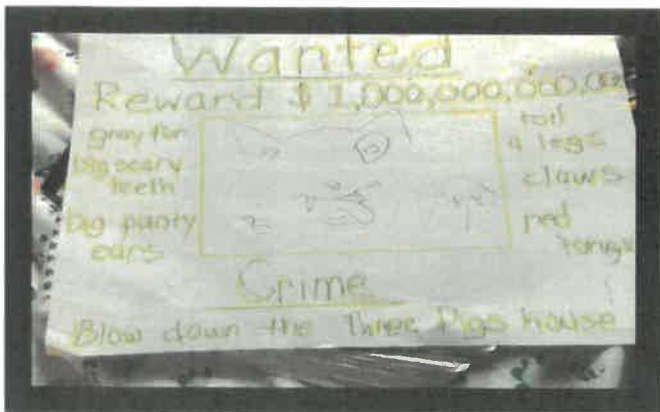 Wanted
Reward $ 1,000,000,000,000
gray fur
big scary
teeth
big punty
ears
tail
4 legs
claws
red
Crime
Blow down the Three Pigs house